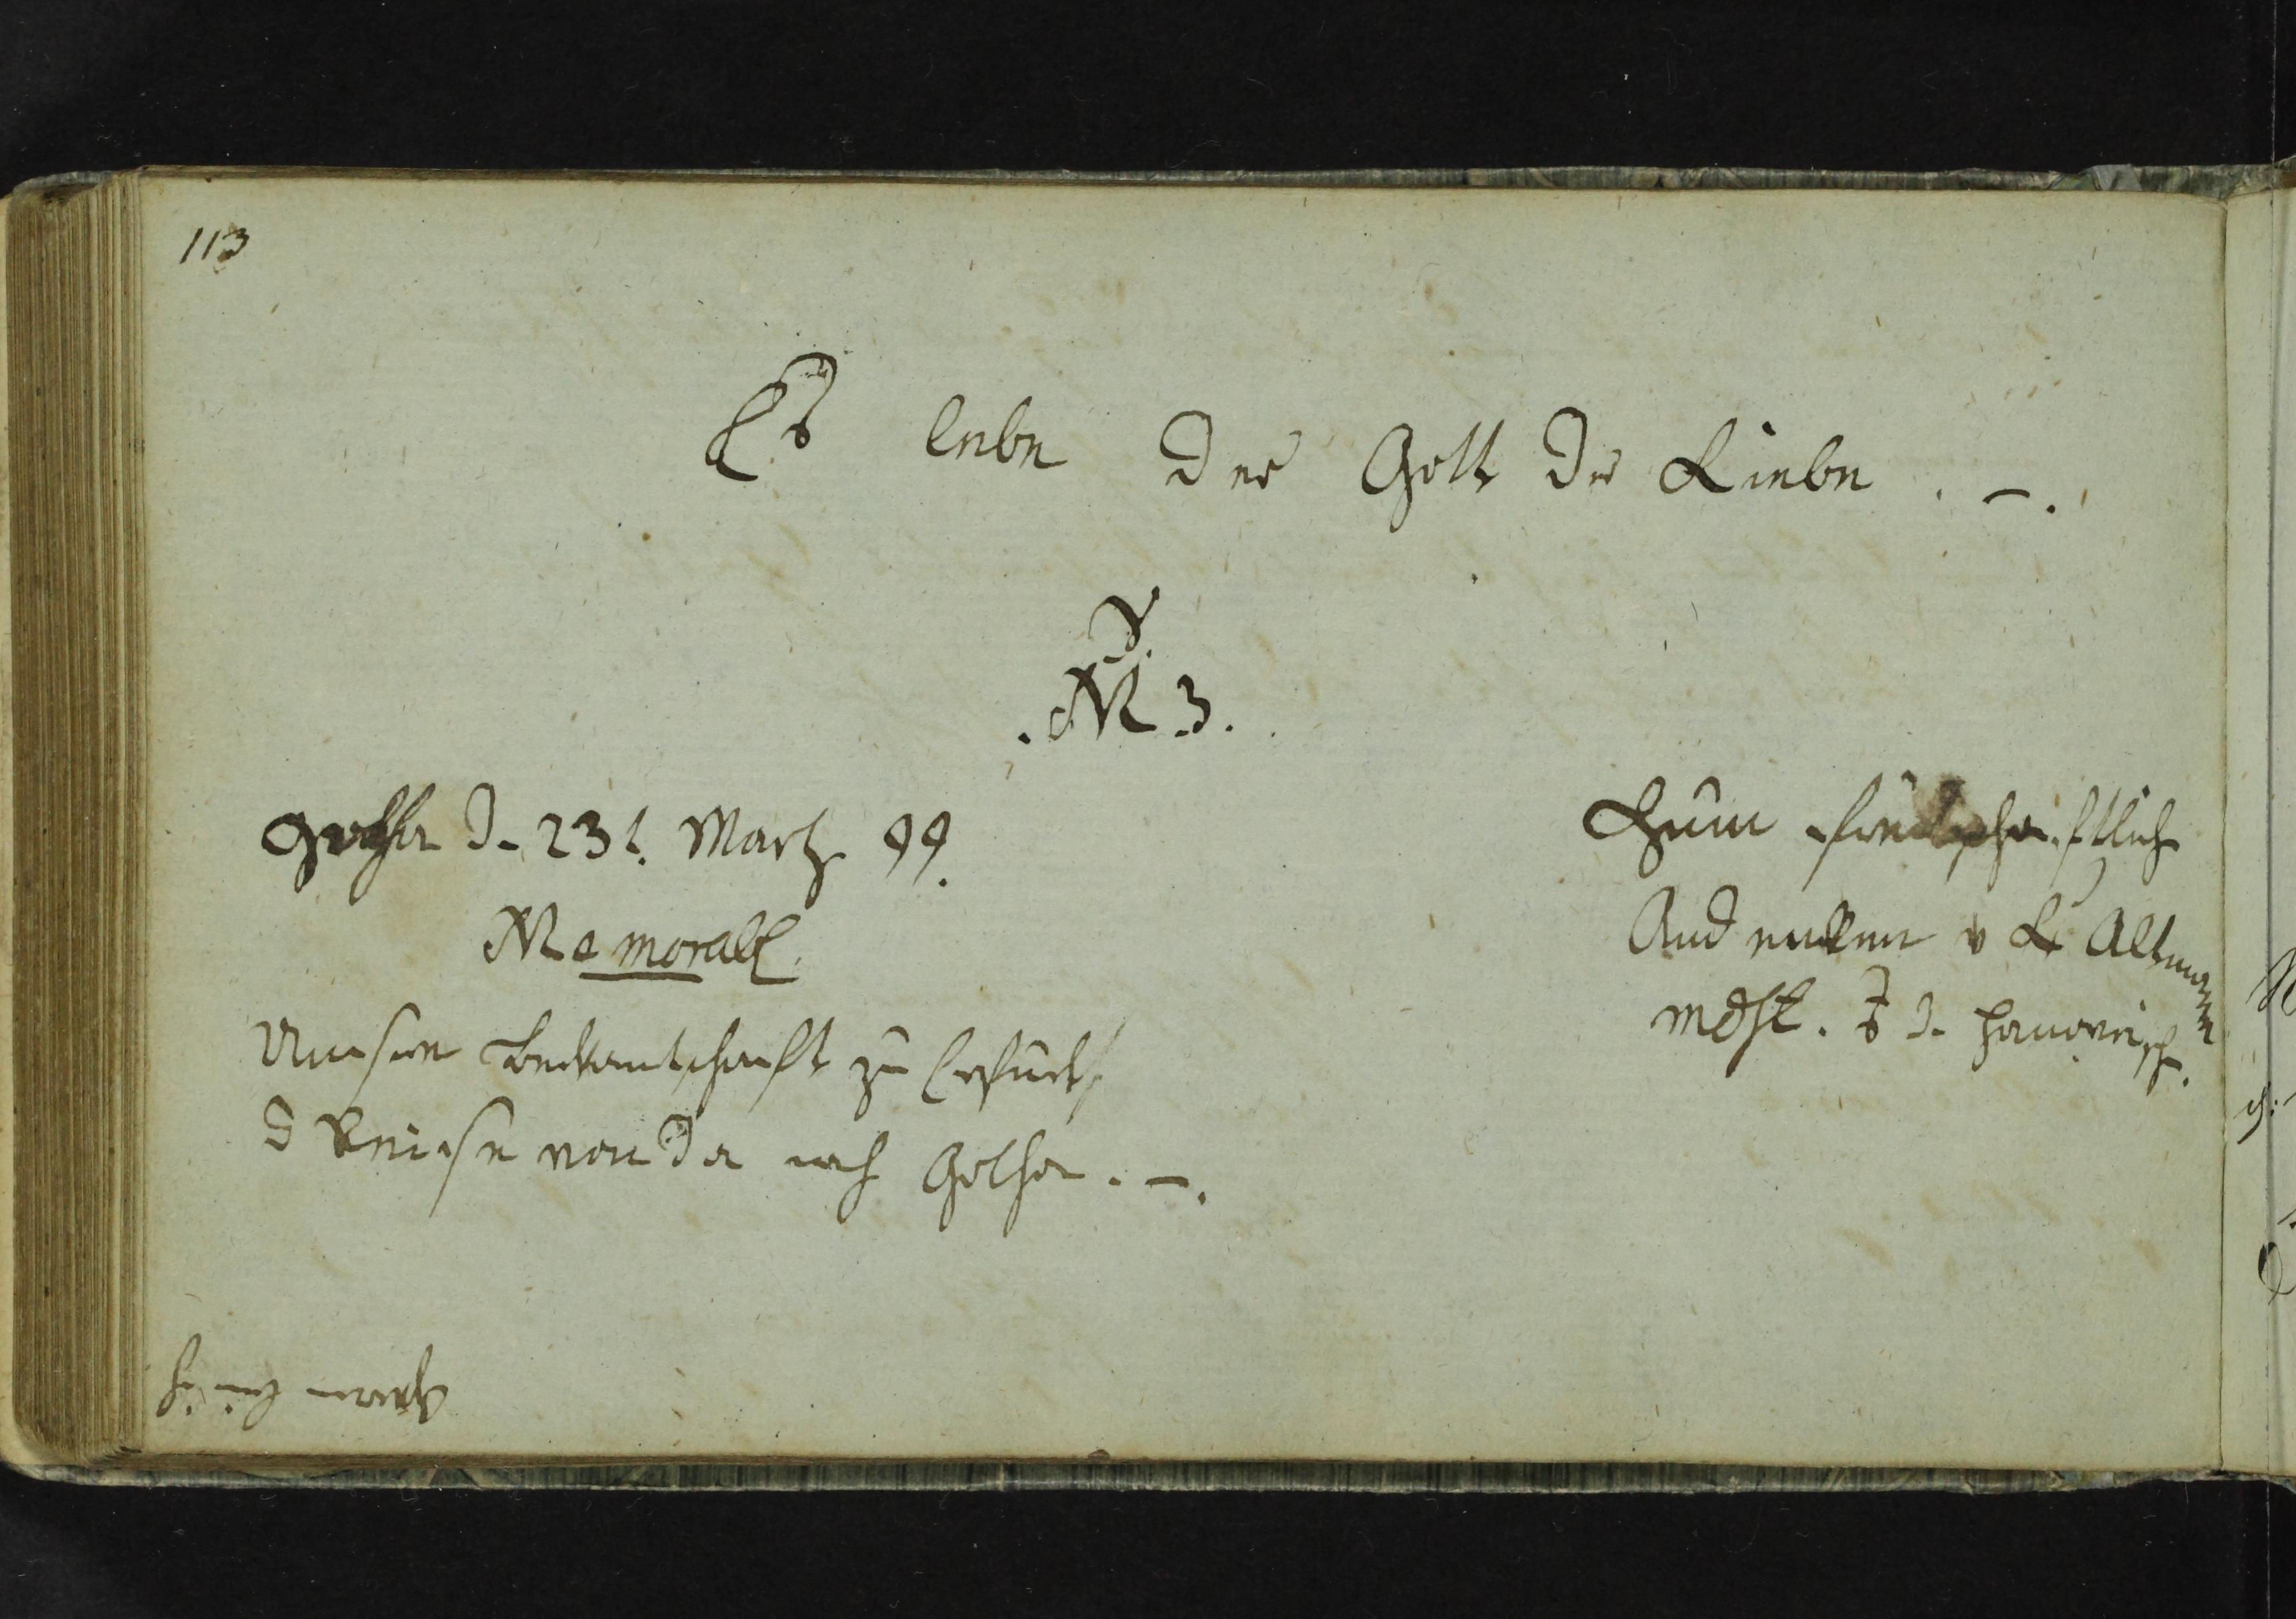 113
Es lebe der Gott der Liebe . – .
N 3.
Gotha d. 23 t. Martz 99.
Memorabl.
Unsere Bekantschaft zu Erfurt,
d Reise von da nach Gotha . – .
Zum freundschaftlich
Andenken v L Altmann
a. d. Hanövrisch.